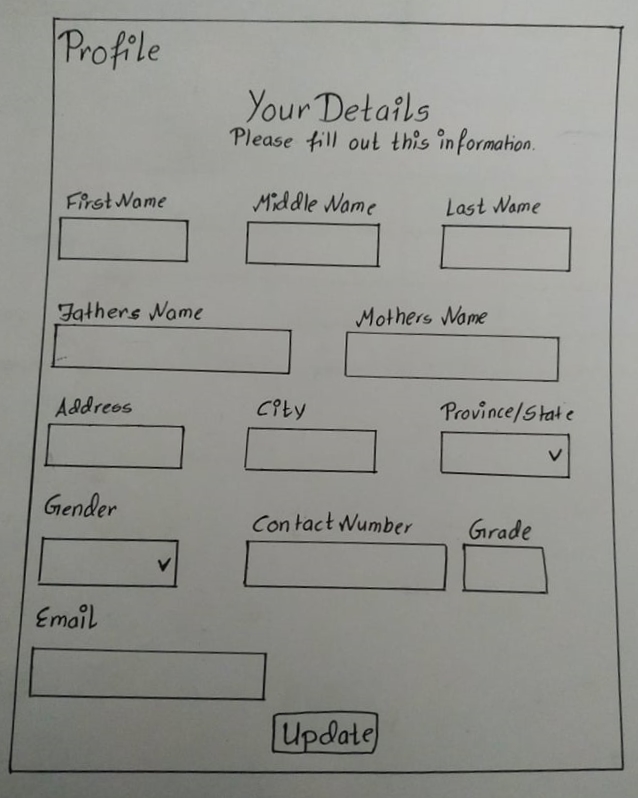 Profile
Your Details
Please fill out this information.
First Name Middle Name Last Name
Fathers Name Mothers Name
Address City Province/State
Gender Contact Number Grade
Email
Update